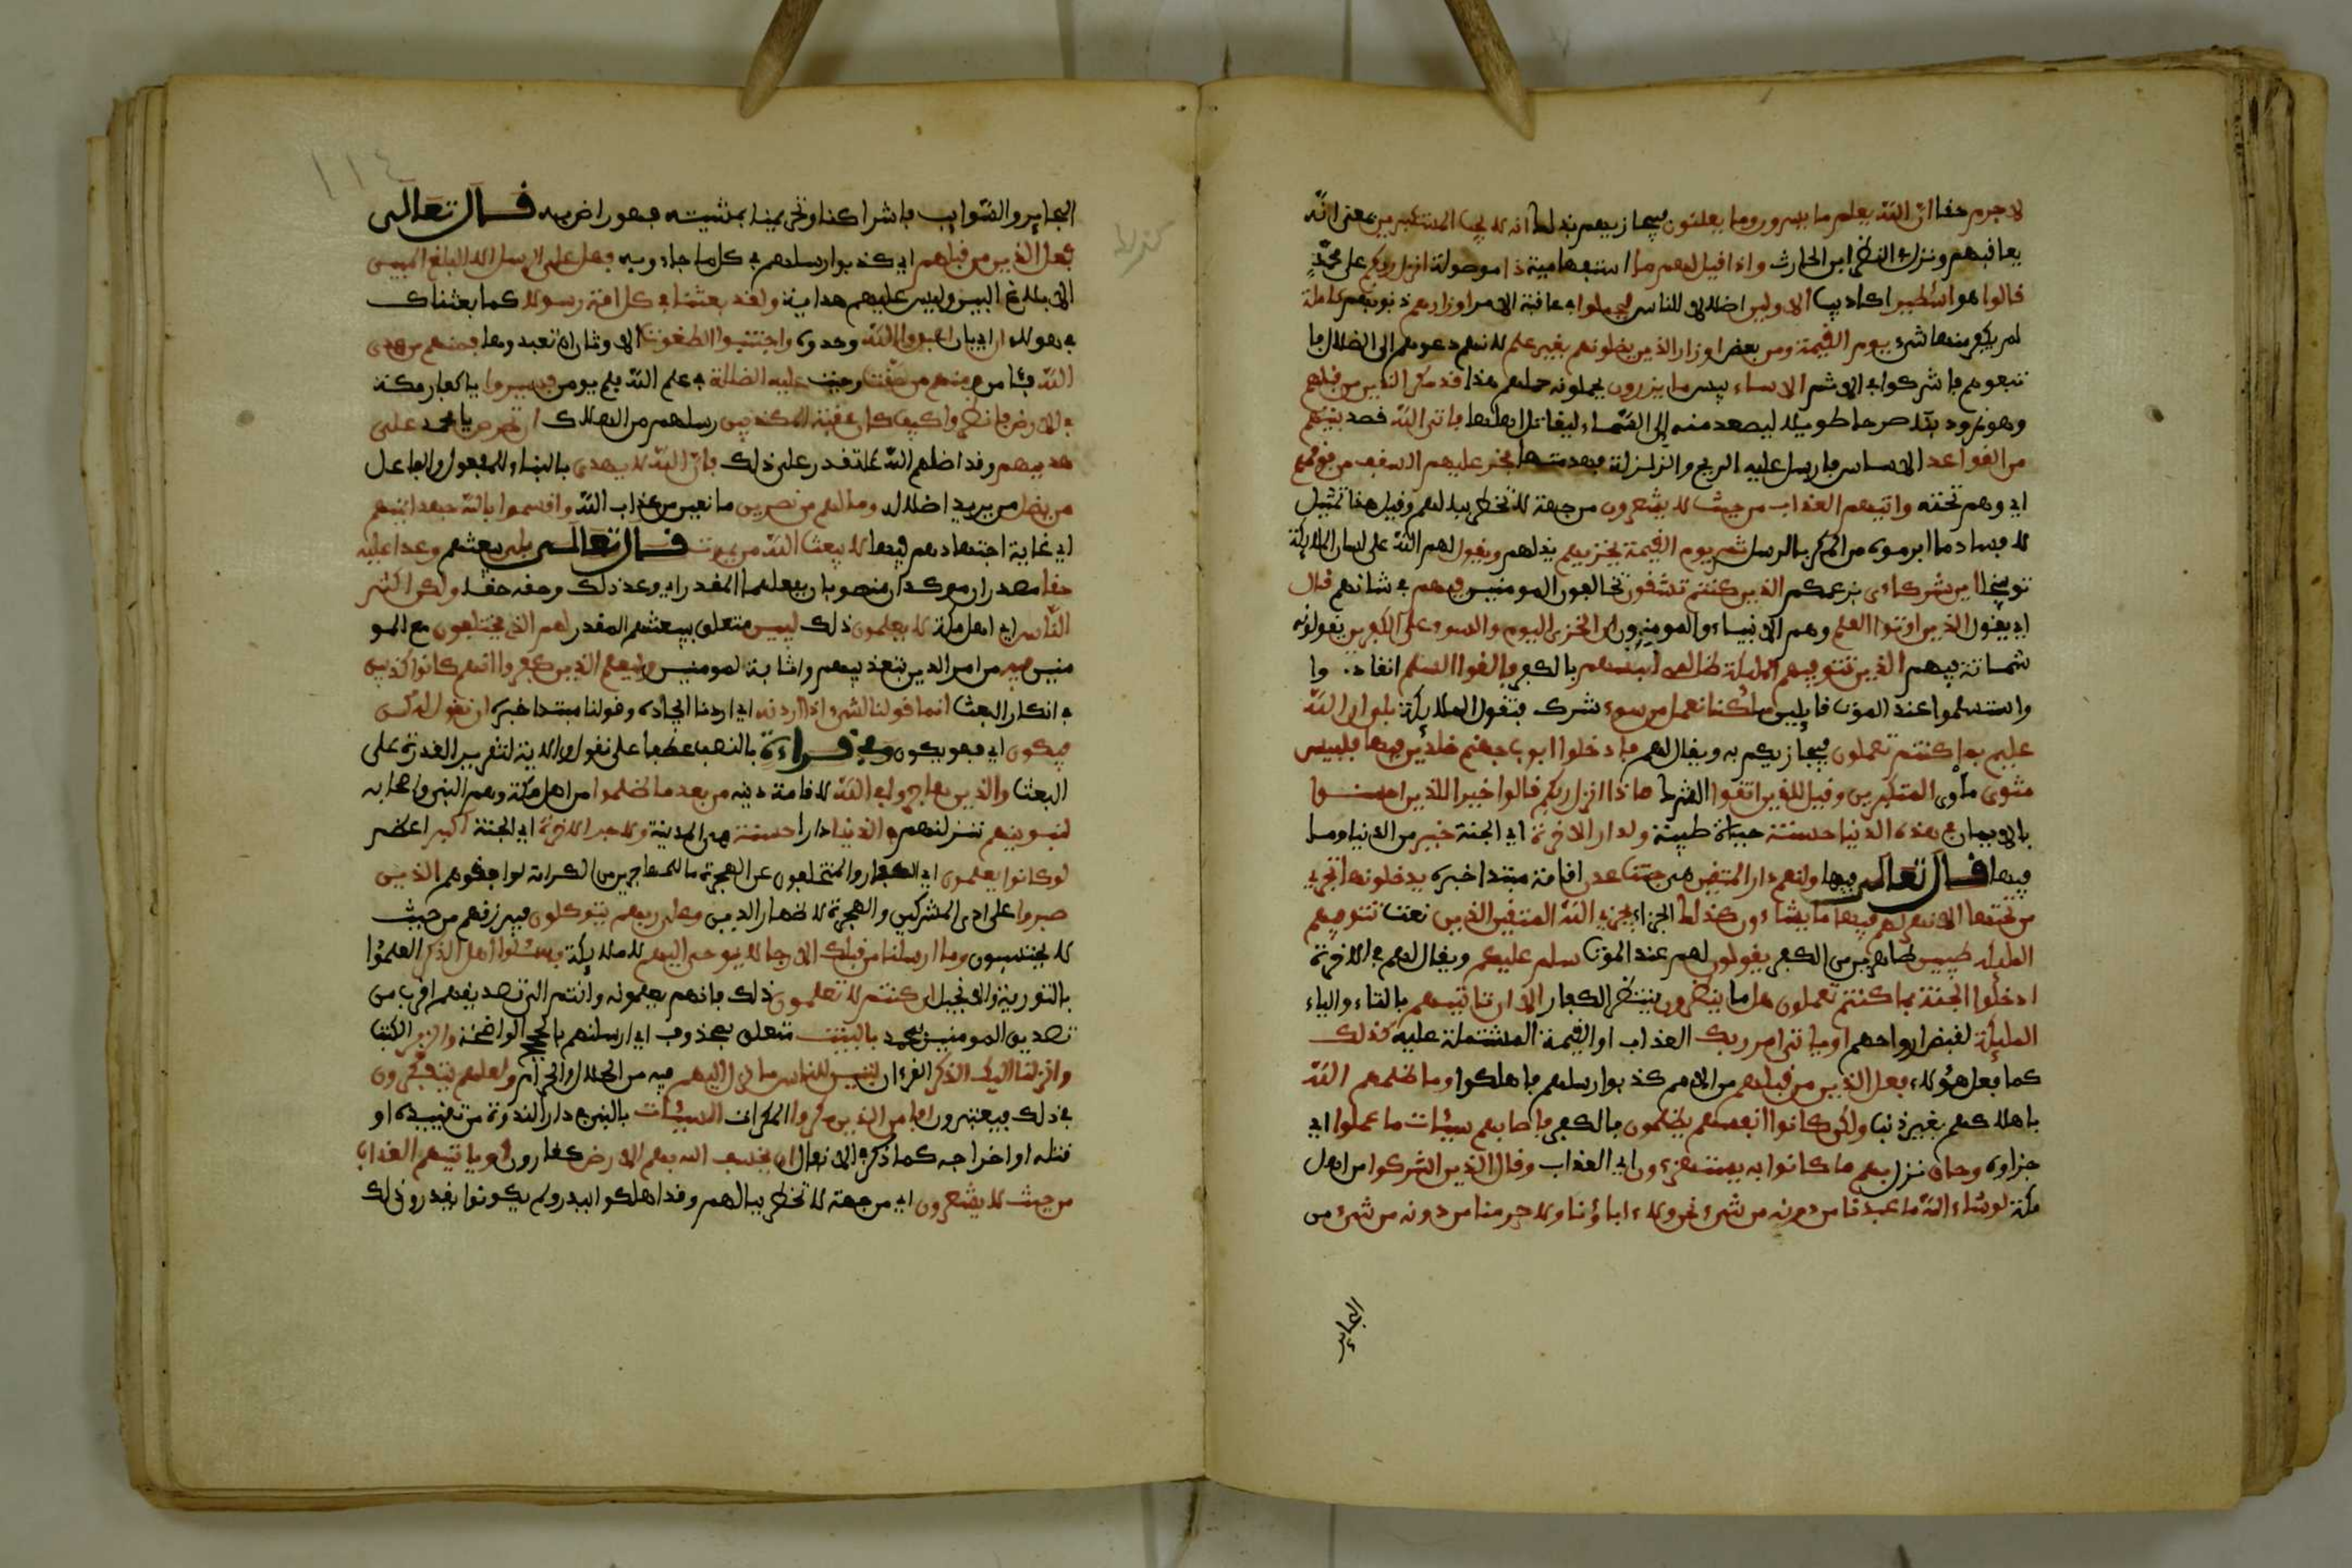 لا جرم حقا ان الله يعلم ما يسرون وما يعلنون فيجازيهم بذلك انه لا يحب المستكبرين بمعنى انه
يعاقبهم ونزل في النضر ابن الحارث واذا قيل لهم ما استفهامية ذا موصولة انزل ربكم على محمد
قالوا هو اسطير اكاذيب الاولين اضلالا للناس ليحملوا في عاقبة الامر اوزارهم ذنوبهم كاملة
لم يكفر منها شيء يوم القيمة ومن بعض اوزار الذين يضلونهم بغير علم لانهم دعوهم الى الضلال فا
تبعوهم فاشتركوا في الاثم الا ساء بيس ما يزرون يحملونه حملهم هذا قد مكر الذين من قبلهم
وهو نمرود بنا صرحا طويلا ليصعد منه الى السماء ليقاتل اهلها فاتى الله قصد بنينهم
من القواعد الاساس فارسل عليه الريح والزلزلة فهدمتها فخر عليهم السقف من فوقهم
اي وهم تحته واتيهم العذاب من حيث لا يشعرون من جهة لا تخطر ببالهم وقيل هذا تمثيل
لافساد ما ابرموه من المكر بالرسل ثم يوم القيمة يخزيهم يذلهم ويقول لهم الله على لسان الملايكة
توبيخا اين شركاءي بزعمكم الذين كنتم تشقون تخالفون المومنين فيهم في شانهم قال
اي يقول الذين اوتوا العلم وهم الانبياء والمومنون ان الخزي اليوم والسوء على الكفرين يقولونه
شماتة بهم الذين تتوفيهم المليكة ظالمي انفسهم بالكفر فالقوا السلم انقادوا
واستسلموا عند الموت قايلين ما كنا نعمل من سوء شرك فتقول الملايكة بلى ان الله
عليم بما كنتم تعملون فيجازيكم به ويقال لهم فادخلوا ابوب جهنم خلدين فيها فلبيس
مثوى ماوى المتكبرين وقيل للذين اتقوا الشرك ماذا انزل ربكم قالوا خيرا للذين احسنوا
بالايمان في هذه الدنيا حسنة حياة طيبة ولدار الاخرة اي الجنة خير من الدنيا وما
فيها قال تعالى فيها ولنعم دار المتقين هي جنت عدن اقامة مبتدا خبره يدخلونها تجري
من تحتها الانهر لهم فيها ما يشاءون كذلك الجزاء يجزي الله المتقين الذين نعت تتوفيهم
المليكة طيبين طاهرين من الكفر يقولون لهم عند الموت سلم عليكم ويقال لهم في الاخرة
ادخلوا الجنة بما كنتم تعملون هل ما ينظرون ينتظر الكفار الا ان تاتيهم بالتاء والياء
المليكة لقبض ارواحهم او ياتي امر ربك العذاب او القيمة المشتملة عليه كذلك
كما فعل هؤلاء فعل الذين من قبلهم من الامم كذبوا رسلهم فاهلكوا وما ظلمهم الله
باهلاكهم بغير ذنب ولكن كانوا انفسهم يظلمون بالكفر فاصابهم سيئات ما عملوا اي
جزاوه وحاق نزل بهم ما كانوا به يستهزءون اي العذاب وقال الذين اشركوا من اهل
مكة لو شاء الله ما عبدنا من دونه من شيء نحن ولا ءاباؤنا ولا حرمنا من دونه من شيء من
البحاير
١١٤
البحاير والسوايب فاشراكنا وتحريمنا بمشيته فهو راض به قال تعالى
فعل الذين من قبلهم اي كذبوا رسلهم في كل ما جاءوا به فهل على الرسل الا البلغ المبين
الا بلاغ البين وليس عليهم هداية ولقد بعثنا في كل امة رسولا كما بعثناك
في هولاء ان اي بان اعبدوا الله وحدوه واجتنبوا الطغوت الاوثان ان تعبدوها فمنهم من هدى
الله فامن ومنهم من حقت وجبت عليه الضللة في علم الله فلم يومن فسيروا يا كفار مكة
في الارض فانظروا كيف كان عقبة المكذبين رسلهم من الهلاك ان تحرص يا محمد على
هديهم وقد اضلهم الله لا تقدر على ذلك فان الله لا يهدى بالبناء للمفعول والفاعل
من يضل من يريد اضلاله وما لهم من نصرين مانعين من عذاب الله واقسموا بالله جهد ايمنهم
اي غاية اجتهادهم فيها لا يبعث الله من يموت قال تعالى بلى يبعثهم وعدا عليه
حقا مصدران موكدان منصوبان بفعلهما المقدر اي وعد ذلك وحقه حقا ولكن اكثر
الناس اي اهل مكة لا يعلمون ذلك ليبين متعلق بيبعثهم المقدر لهم الذي يختلفون مع المو
منين فيه من امر الدين بتعذيبهم واثابة المومنين وليعلم الذين كفروا انهم كانوا كذبين
في انكار البعث انما قولنا لشيء اذا اردنه اي اردنا ايجاده وقولنا مبتدا خبره ان نقول له كن
فيكون اي فهو يكون وفي قراءة بالنصب عطفا على نقول والاية لتقرير القدرة على
البعث والذين هاجروا في الله لاقامة دينه من بعد ما ظلموا من اهل مكة وهم النبي واصحابه
لنبوينهم ننزلنهم في الدنيا دارا حسنة هي المدينة ولاجر الاخرة اي الجنة اكبر اعظم
لو كانوا يعلمون اي الكفار والمتخلفون عن الهجرة ما للمهاجرين من الكرامة لوافقوهم الذين
صبروا على اذى المشركين والهجرة لاظهار الدين وعلى ربهم يتوكلون فيرزقهم من حيث
لا يحتسبون وما ارسلنا من قبلك الا رجالا نوحي اليهم لا ملايكة فسئلوا اهل الذكر العلموا
بالتورية والانجيل ان كنتم لا تعلمون ذلك فانهم يعلمونه وانتم الى تصديقهم اقرب من
تصديق المومنين بمحمد بالبينت متعلق بمحذوف اي ارسلنهم بالحجج الواضحة والزبر الكتب
وانزلنا اليك الذكر القرءان لتبين للناس ما نزل اليهم فيه من الحلال والحرام ولعلهم يتفكرون
في ذلك فيعتبرون افامن الذين مكروا المكرات السيئات بالنبي في دار الندوة من تقييده او
قتله او اخراجه كما ذكر في الانفال ان يخسف الله بهم الارض كقارون او ياتيهم العذاب
من حيث لا يشعرون اي من جهة لا تخطر ببالهم وقد اهلكوا ببدر ولم يكونوا يقدروا ذلك